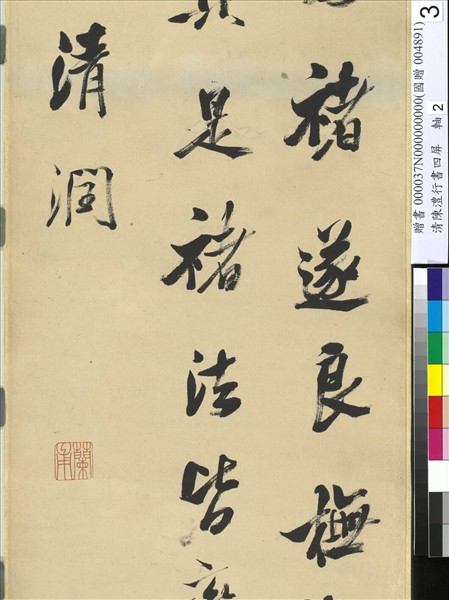 褚遂良橅
是褚法皆
清潤
蘭甫
贈書 000037N000000000(國贈 004891)
清陳澧行書四屏 軸 2
3